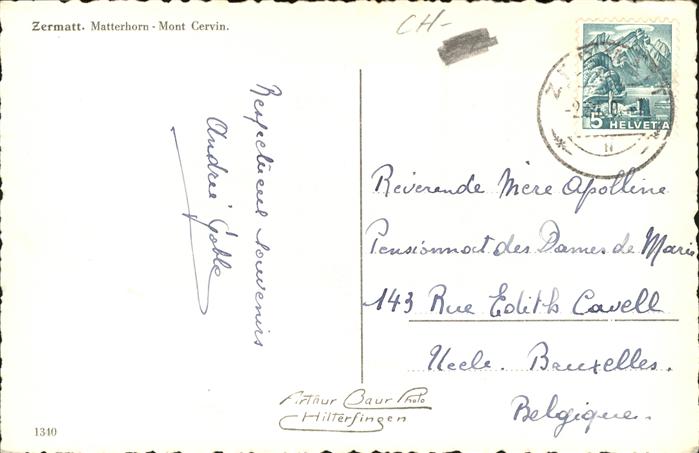 Zermatt. Matterhorn - Mont Cervin.
CH-
5 HELVETIA
Respectueux souvenirs
Andrée
Révérende Mère Apolline
Pensionnat des Dames de Marie
143 Rue Edith Cavell
Uccle. Bruxelles.
Belgique.
Arthur Baur Photo
Hilterfingen
1310